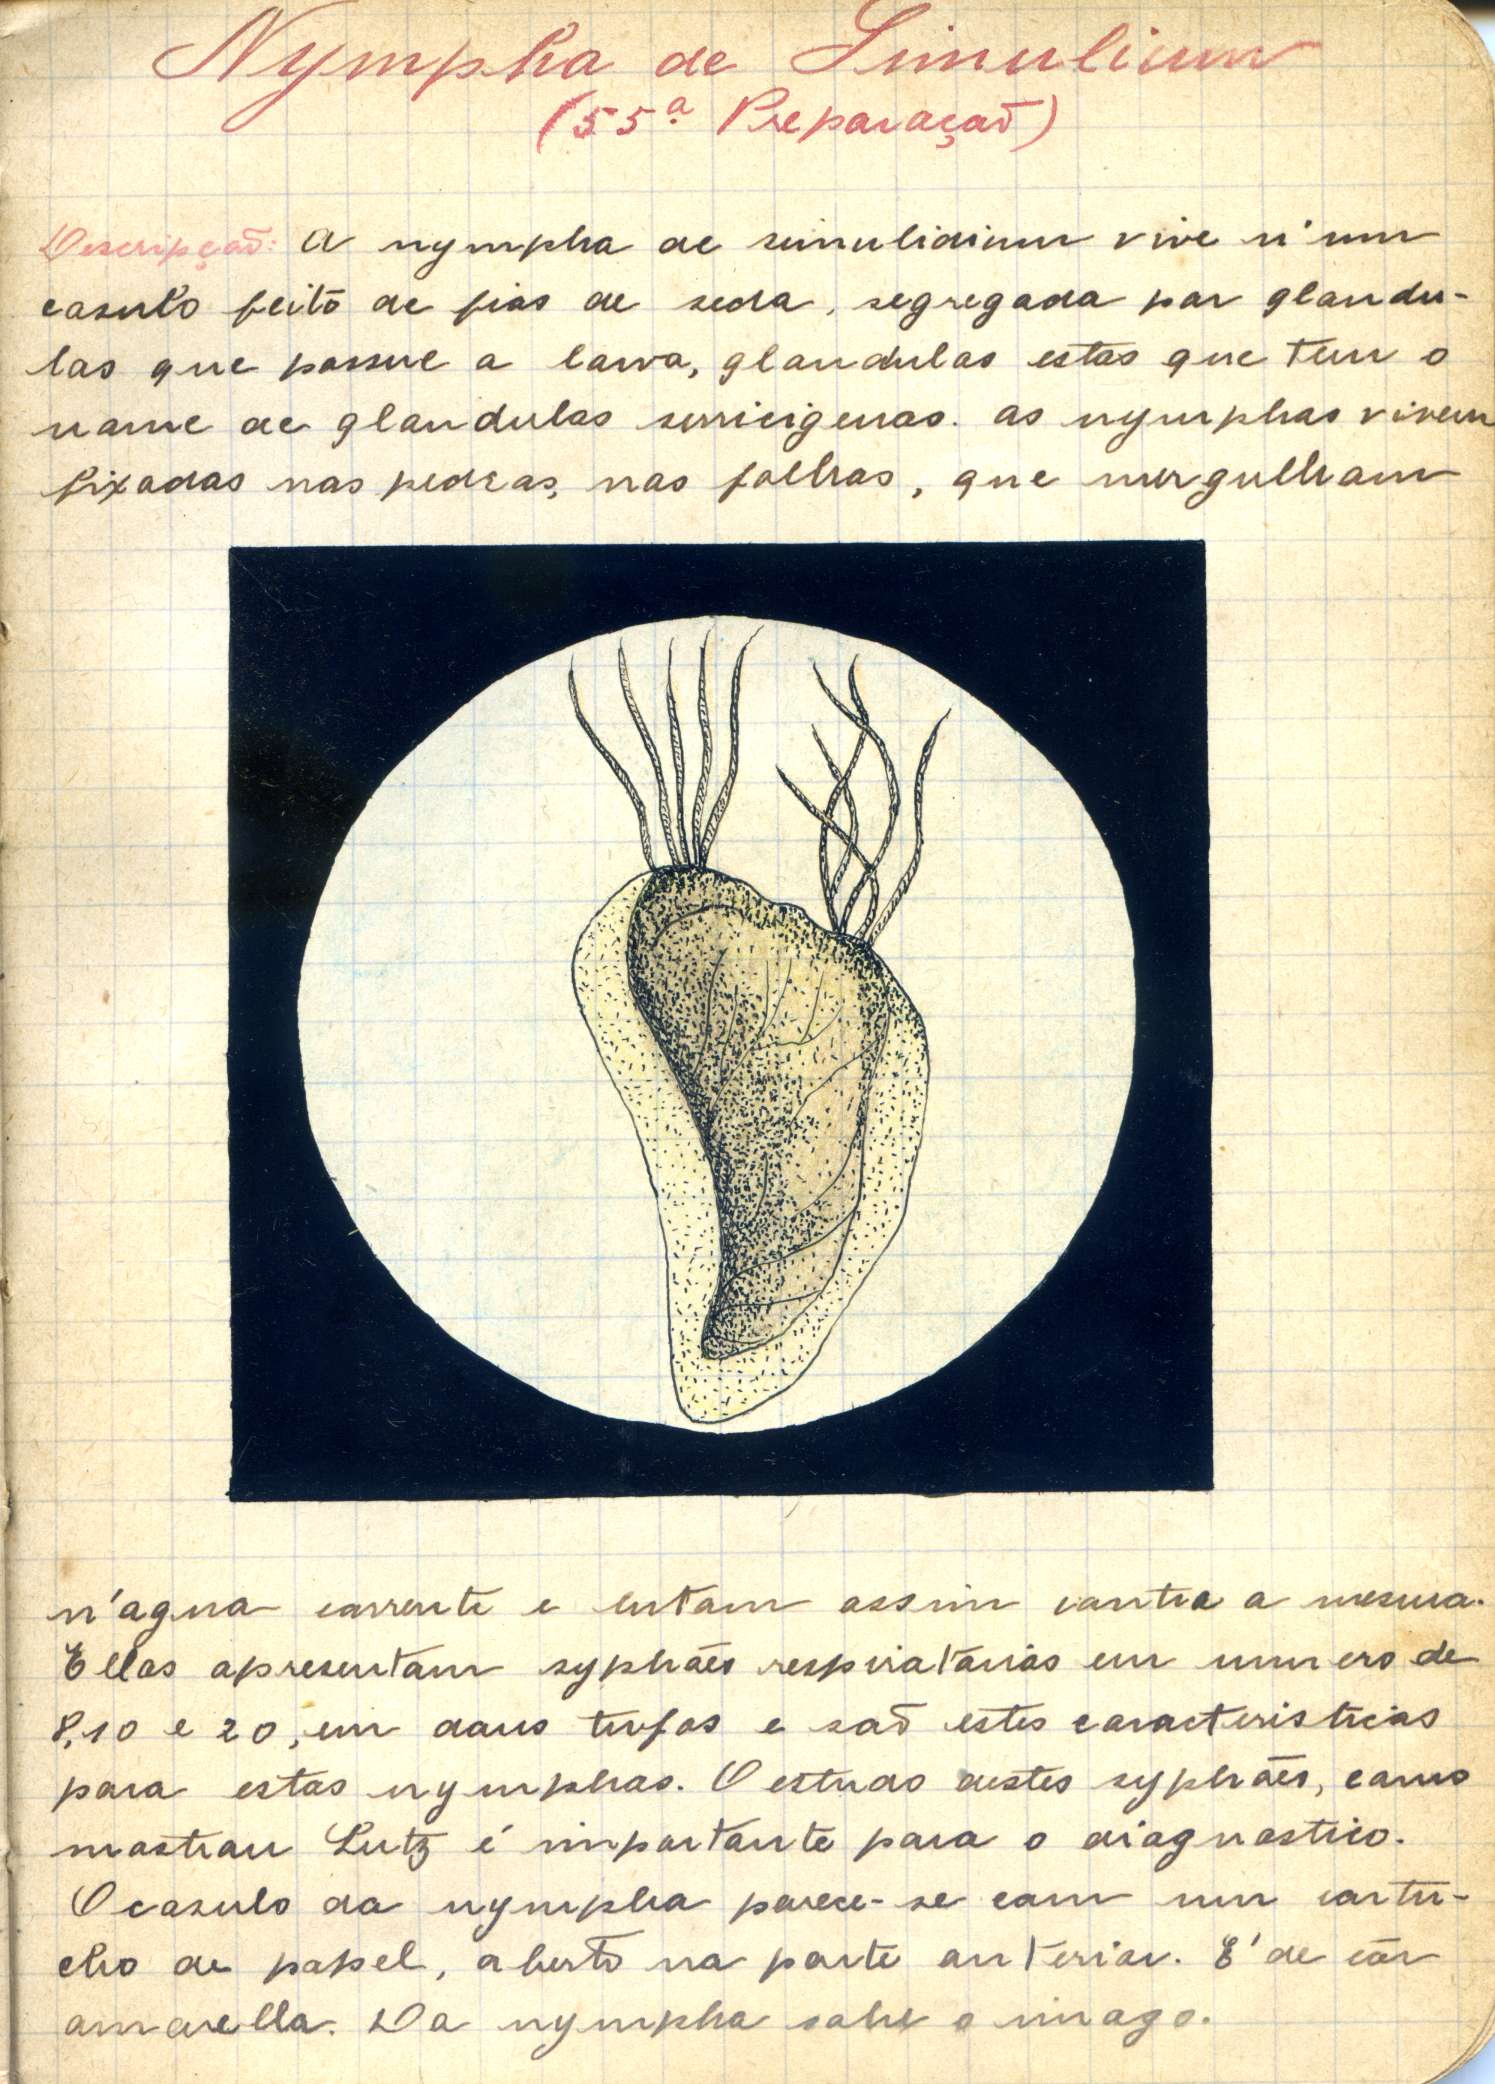 Nympha de Simulium
(55ª Preparação)
Descripção: A nympha de simulidium vive n'um
casulo feito de fios de seda, segregada por glandu-
las que possue a larva, glandulas estas que tem o
nome de glandulas serricigenas. As nymphas vivem
fixadas nas pedras, nas folhas, que mergulham
n'agua corrente e lutam assim contra a mesma.
Ellas apresentam syphões respiratorios em numero de
8, 10 e 20, em dous tufos e são estes caracteristicos
para estas nymphas. O estudo destes syphões, como
mostrou Lutz é importante para o diagnostico.
O casulo da nympha parece-se com um cartu-
cho de papel, aberto na parte anterior. E' de côr
amarella. Da nympha sahe o imago.